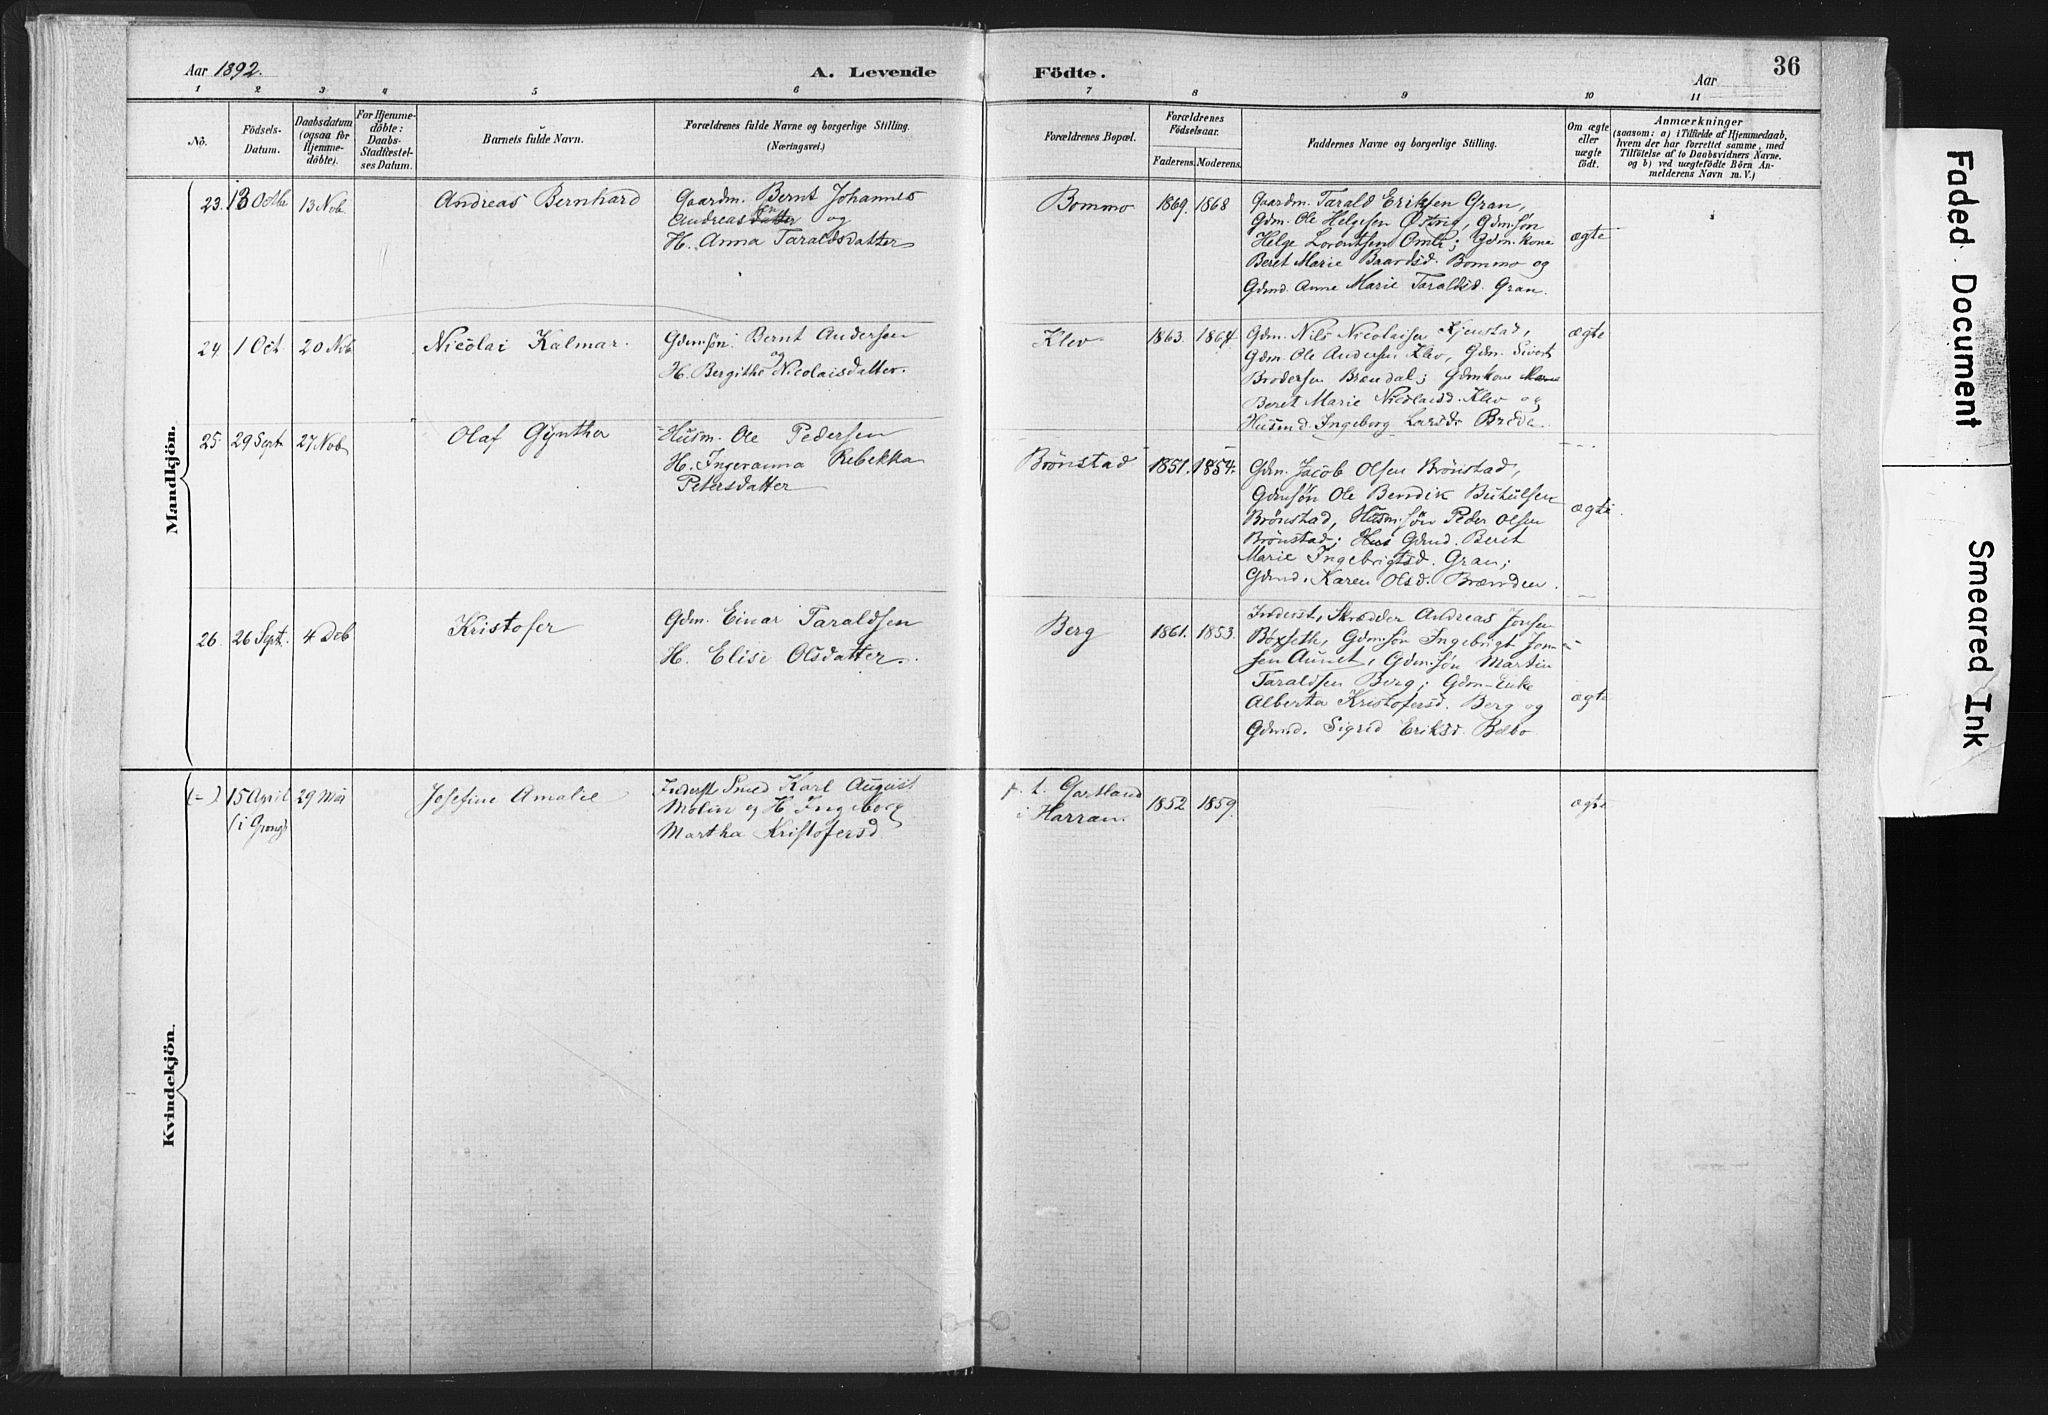 Aar 1892.
A. Levende Födte.
Aar
36
1 2 3 4 5 6 7 8 9 10 11
No.
Födsels-Datum.
Daabsdatum (ogsaa for Hjemme-döbte).
For Hjemme-döbte: Daabs-Stadfæstel-ses Datum.
Barnets fulde Navn.
Forældrenes fulde Navne og borgerlige Stilling. (Næringsvei.)
Forældrenes Bopæl.
Forældrenes Födselsaar.
Faderens. Moderens.
Faddernes Navne og borgerlige Stilling.
Om ægte eller uægte födt.
Anmærkninger
(saasom: a) i Tilfælde af Hjemmedaab,
hvem der har forrettet samme, med
Tilföielse af to Daabsvidners Navne.
og b) ved uegtefödte Börn An-
melderens Navn m. V.)
Mandkjön.
23. 13 Octbr 13 Nob Andreas Bernhard
Gaardm. Bernt Johannes
Andreasdatter en og
H. Anna Taraldsdatter
Bommo 1869. 1868
Gaardm. Tarald Eriksen Gran,
Gdm. Ole Helgesen Østvig, Gdmsøn
Helge Lorentsen Omli; Gdm. kone
Beret Marie Baardsd. Bommo og
Gdmd. Anne Marie Taraldsd. Gran.
ægte
24 1 Oct 20 Nob Nicolai Kalmar.
Gdmsøn Bernt Andersen
og
H. Bergithe Nicolaisdatter.
Klev 1863. 1864
Gdm. Nils Nicolaisen Kjenstad,
Gdm. Ole Andersen Klev, Gdm. Sivert
Brodersen Brændal; Gdmkone
Beret Marie Nicolaisd. Klev og
Husmd. Ingeborg Larsdr Brede.
ægte
25. 29 Sept. 27 Nob Olaf Gynther
Husm. Ole Pedersen
H. Ingeranna Rebekka
Petersdatter
Brønstad 1851. 1854.
Gdm. Jacob Olsen Brønstad,
Gdmsøn Ole Bendik Buhulsen
Brønstad, Husm. søn Peder Olsen
Brønstad; Hus Gdmd. Beret
Marie Ingebrigtsd. Gran;
Gdmd. Karen Olsd. Brænden.
ægte
26. 26 Sept. 4 Deb Kristofer
Gdm. Einar Taraldsen
H. Elise Olsdatter.
Berg 1861. 1853.
Inderst, Skrædder Andreas Jonsen
Böxseth, Gdmsøn Ingebrigt Jonn-
sen Aunet, Gdmsøn Martin
Taraldsen Berg; Gdm-Enke
Alberta Kristofersd. Berg og
Gdmd. Sigrid Eriksd. Belbo.
ægte
Kvindekjön.
(-) 15 April 29 Mai Josefine Amalie
(i Grong)
Inderst Smed Karl August
Molin og H. Ingeborg
Martha Kristofersd.
p. t. Gartland
i Harran. 1852 1859.
ægte
Faded Document
Smeared Ink